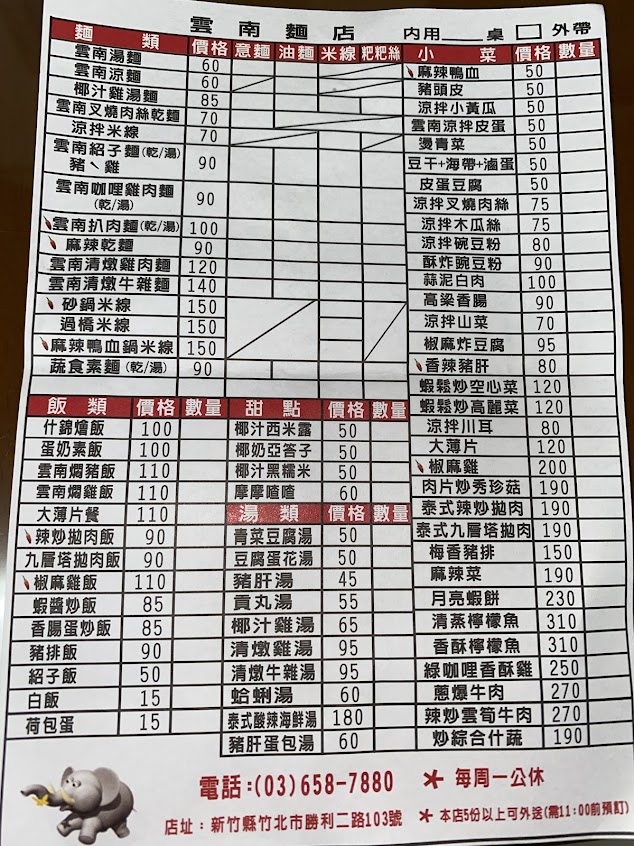 雲南麵店 內用___桌 □ 外帶
麵類 價格 意麵 油麵 米線 粑粑絲
雲南湯麵 60
雲南涼麵 60
椰汁雞湯麵 85
雲南叉燒肉絲乾麵 70
涼拌米線 70
雲南紹子麵(乾/湯) 豬、雞 90
雲南咖哩雞肉麵 (乾/湯) 90
雲南扒肉麵(乾/湯) 100
麻辣乾麵 90
雲南清燉雞肉麵 120
雲南清燉牛雜麵 140
砂鍋米線 150
過橋米線 150
麻辣鴨血鍋米線 150
蔬食素麵(乾/湯) 90
飯類 價格 數量
什錦燴飯 100
蛋奶素飯 100
雲南燜豬飯 110
雲南燜雞飯 110
大薄片餐 110
辣炒拋肉飯 90
九層塔拋肉飯 90
椒麻雞飯 110
蝦醬炒飯 85
香腸蛋炒飯 85
豬排飯 90
紹子飯 50
白飯 15
荷包蛋 15
甜點 價格 數量
椰汁西米露 50
椰奶亞答子 50
椰汁黑糯米 50
摩摩喳喳 60
湯類 價格 數量
青菜豆腐湯 50
豆腐蛋花湯 50
豬肝湯 45
貢丸湯 55
椰汁雞湯 65
清燉雞湯 95
清燉牛雜湯 95
蛤蜊湯 60
泰式酸辣海鮮湯 180
豬肝蛋包湯 60
小菜 價格 數量
麻辣鴨血 50
豬頭皮 50
涼拌小黃瓜 50
雲南涼拌皮蛋 50
燙青菜 50
豆干+海帶+滷蛋 50
皮蛋豆腐 50
涼拌叉燒肉絲 75
涼拌木瓜絲 75
涼拌碗豆粉 80
酥炸豌豆粉 90
蒜泥白肉 100
高梁香腸 90
涼拌山菜 70
椒麻炸豆腐 95
香辣豬肝 80
蝦鬆炒空心菜 120
蝦鬆炒高麗菜 120
涼拌川耳 80
大薄片 120
椒麻雞 200
肉片炒秀珍菇 190
泰式辣炒拋肉 190
泰式九層塔拋肉 190
梅香豬排 150
麻辣菜 190
月亮蝦餅 230
清蒸檸檬魚 310
香酥檸檬魚 310
綠咖哩香酥雞 250
蔥爆牛肉 270
辣炒雲筍牛肉 270
炒綜合什蔬 190
電話:(03)658-7880 * 每周一公休
店址：新竹縣竹北市勝利二路103號 * 本店5份以上可外送(需11:00前預訂)